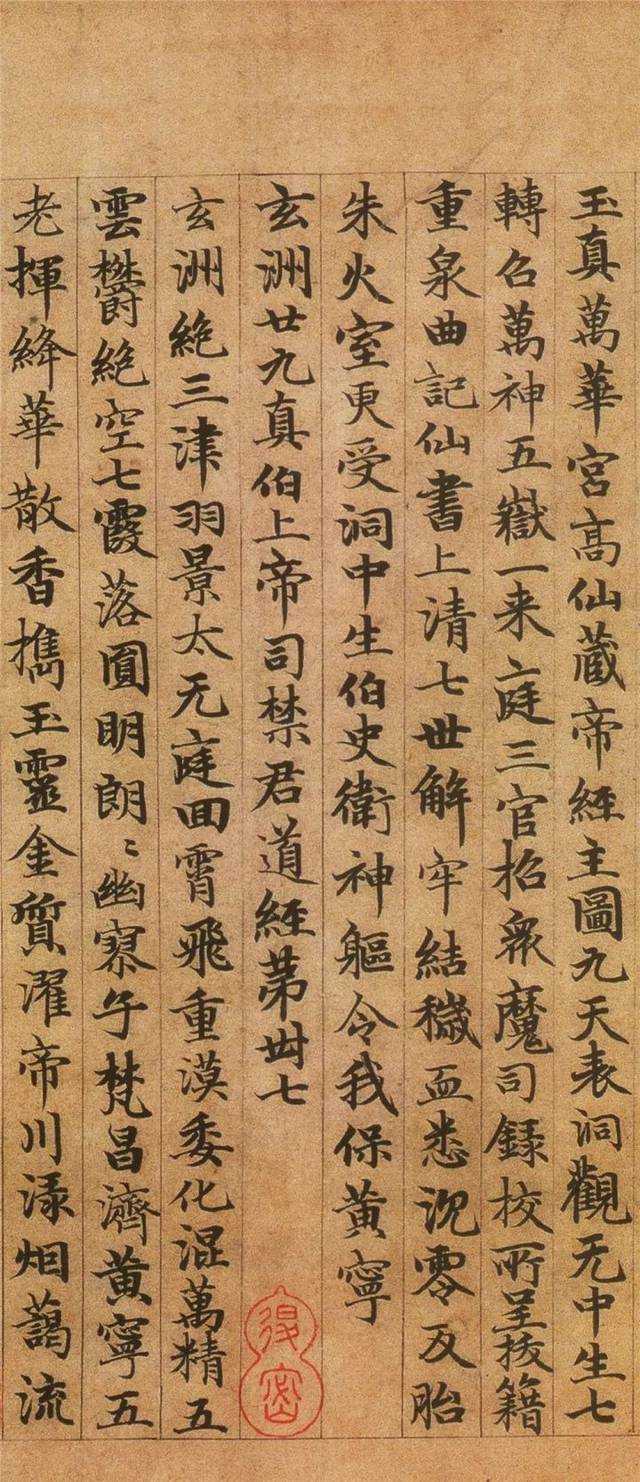 玉真萬華宮高仙藏帝經主圖九天表洞觀无中生七
轉召萬神五嶽一来庭三官招眾魔司錄挍所呈拔籍
重泉曲記仙書上清七世解牢結穢血悉沉零反胎
朱火室更受洞中生伯史衛神軀令我保黄寧
玄洲廿九真伯上帝司禁君道經苐丗七
玄洲絶三津羽景太无庭回霄飛重漠委化混萬精五
雲欝絶空七霞落圓明朗〻幽寮午梵昌濟黄寧五
老揮絳華散香擕玉靈金質濯帝川渌烟藹流
得密